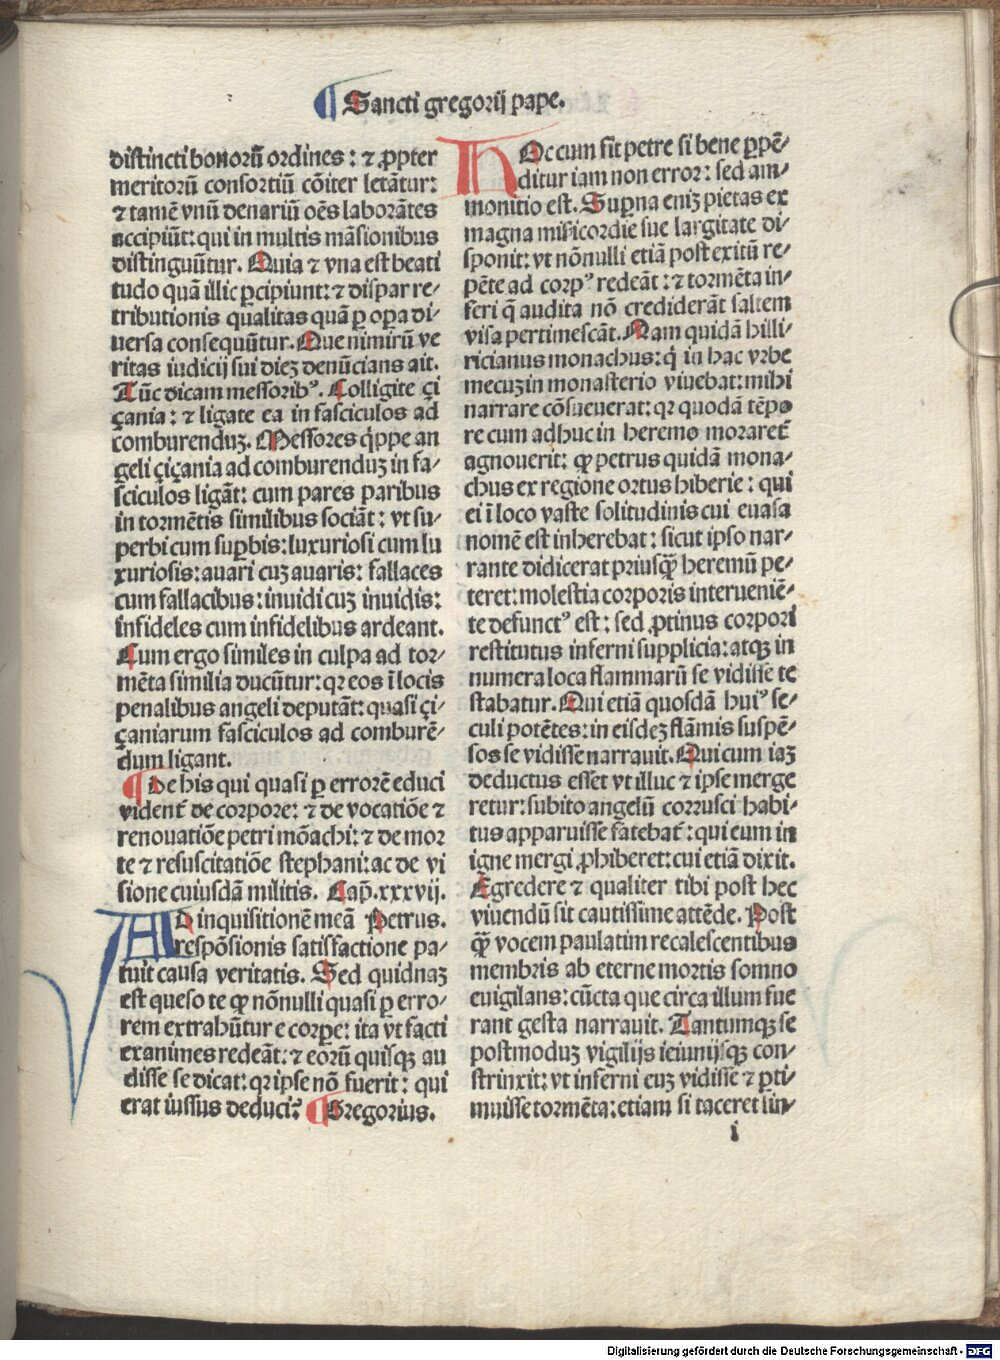 ¶ Sancti gregorij pape.
distincti bonorū ordines: ⁊ ꝓpter
meritorū consortiū cōiter letātur:
⁊ tamē vnū denariū oēs laborātes
accipiūt: qui in multis māsionibus
distinguūtur. Quia ⁊ vna est beati
tudo quā illic ꝑcipiunt: ⁊ dispar re-
tributionis qualitas quā ꝑ oꝑa di-
uersa consequūtur. Que nimirū ve
ritas iudicij sui dieꝫ denūcians ait.
Tūc dicam messoribꝰ. Colligite çi
çania: ⁊ ligate ea in fasciculos ad
comburenduꝫ. Messores q̇ppe an
geli çiçania ad comburenduꝫ in fa-
sciculos ligāt: cum pares paribus
in tormētis similibus sociāt: vt su-
perbi cum suꝑbis: luxuriosi cum lu
xuriosis: auari cuꝫ auaris: fallaces
cum fallacibus: inuidi cuꝫ inuidis:
infideles cum infidelibus ardeant.
Cum ergo similes in culpa ad tor-
mēta similia ducūtur: qꝛ eos ī locis
penalibus angeli deputāt: quasi çi-
çaniarum fasciculos ad comburē-
dum ligant.
¶ De his qui quasi ꝑ errorē educi
vident̄ de corpore: ⁊ de vocatiōe ⁊
renouatiōe petri mōachi: ⁊ de mor
te ⁊ resuscitatiōe stephani: ac de vi
sione cuiusdā militis. Cap̄. xxxvij.
AD inquisitionē meā Petrus.
respōsionis satisfactione pa-
tuit causa veritatis. Sed quidnaꝫ
est queso te ꝙ nōnulli quasi ꝑ erro-
rem extrahūtur e corpe: ita vt facti
exanimes redeāt: ⁊ eorū quisqꝫ au
disse se dicat: qꝛ ipse nō fuerit: qui
erat iussus deduci? ¶ Gregorius.
HOc cum fit petre si bene ꝑpē-
ditur iam non error: sed am-
monitio est. Suꝑna eniꝫ pietas ex
magna mīsicordie sue largitate di-
sponit: vt nōnulli etiā post exitū re-
pēte ad corpꝰ redeāt: ⁊ tormēta in-
feri q̄ audita nō crediderāt saltem
visa pertimescāt. Nam quidā hilli-
ricianus monachus: q̇ in hac vrbe
mecuꝫ in monasterio viuebat: mihi
narrare cōsueuerat: qꝛ quodā tēpo
re cum adhuc in heremo moraret̄
agnouerit: ꝙ petrus quidā mona-
chus ex regione ortus hiberie: qui
ei ī loco vaste solitudinis cui euasa
nomē est inherebat: sicut ipso nar-
rante didicerat priusꝙ̄ heremū pe-
teret: molestia corporis interueniē-
te defunctꝰ est: sed ꝓtinus corpori
restitutus inferni supplicia: atqꝫ in
numera loca flammarū se vidisse te
stabatur. Qui etiā quosdā huiꝰ se-
culi potētes: in eisdeꝫ flāmis suspē-
sos se vidisse narrauit. Qui cum iaꝫ
deductus esset vt illuc ⁊ ipse merge
retur: subito angelū corrusci habi-
tus apparuisse fatebat̄: qui eum in
igne mergi ꝓhiberet: cui etiā dixit.
Egredere ⁊ qualiter tibi post hec
viuendū sit cautissime attēde. Post
ꝙ̄ vocem paulatim recalescentibus
membris ab eterne mortis somno
euigilans: cūcta que circa illum fue
rant gesta narrauit. Tantumqꝫ se
postmoduꝫ vigilijs ieiunijsqꝫ con-
strinxit: vt inferni euꝫ vidisse ⁊ ꝑti-
muisse tormēta: etiam si taceret lin-
i
Digitalisierung gefördert durch die Deutsche Forschungsgemeinschaft - DFG